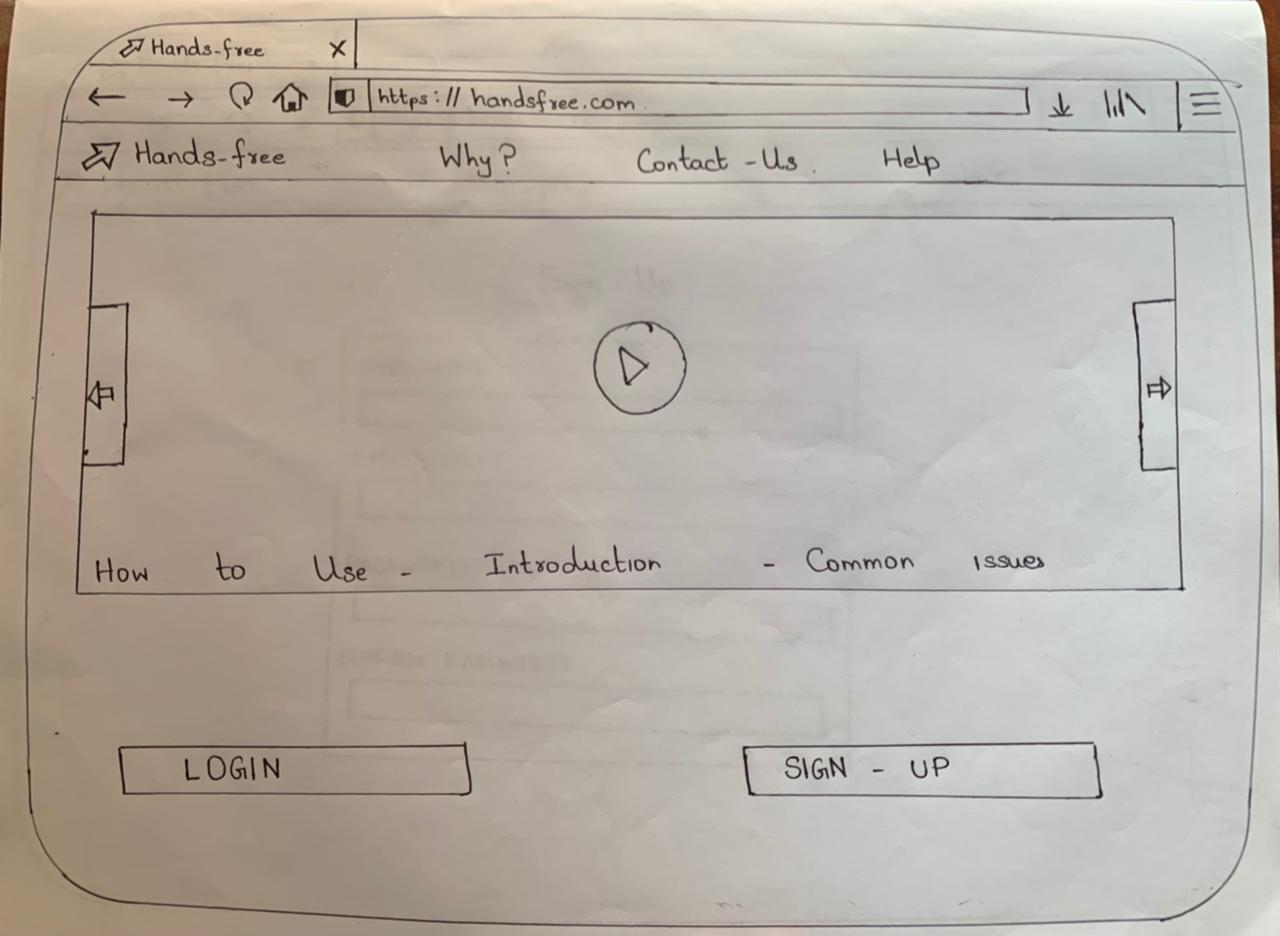 Hands-free X
https:// handsfree.com
Hands-free Why? Contact - Us. Help
How to Use - Introduction - Common issues
LOGIN SIGN - UP